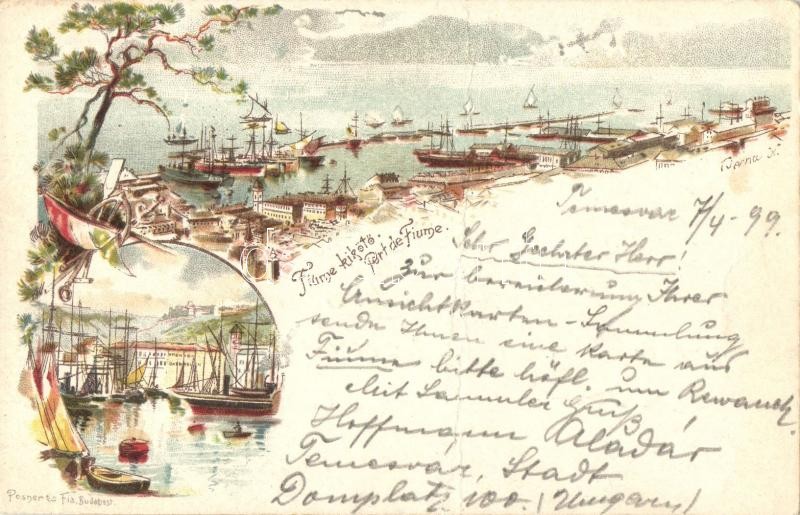 Fiume kikötő.
Port de Fiume.
Temesvár 7/4 99.
Sehr Geehrter Herr!
Zur bereicherung Ihrer
Ansichtkarten-Sammlung
sende Ihnen eine Karte aus
Fiume bitte höfl. um Rewanch.
Mit Sammler Gruß
Hoffmann Aladár
Temesvár, Stadt
Domplatz 100. (Ungarn)
Posner és Fia, Budapest.